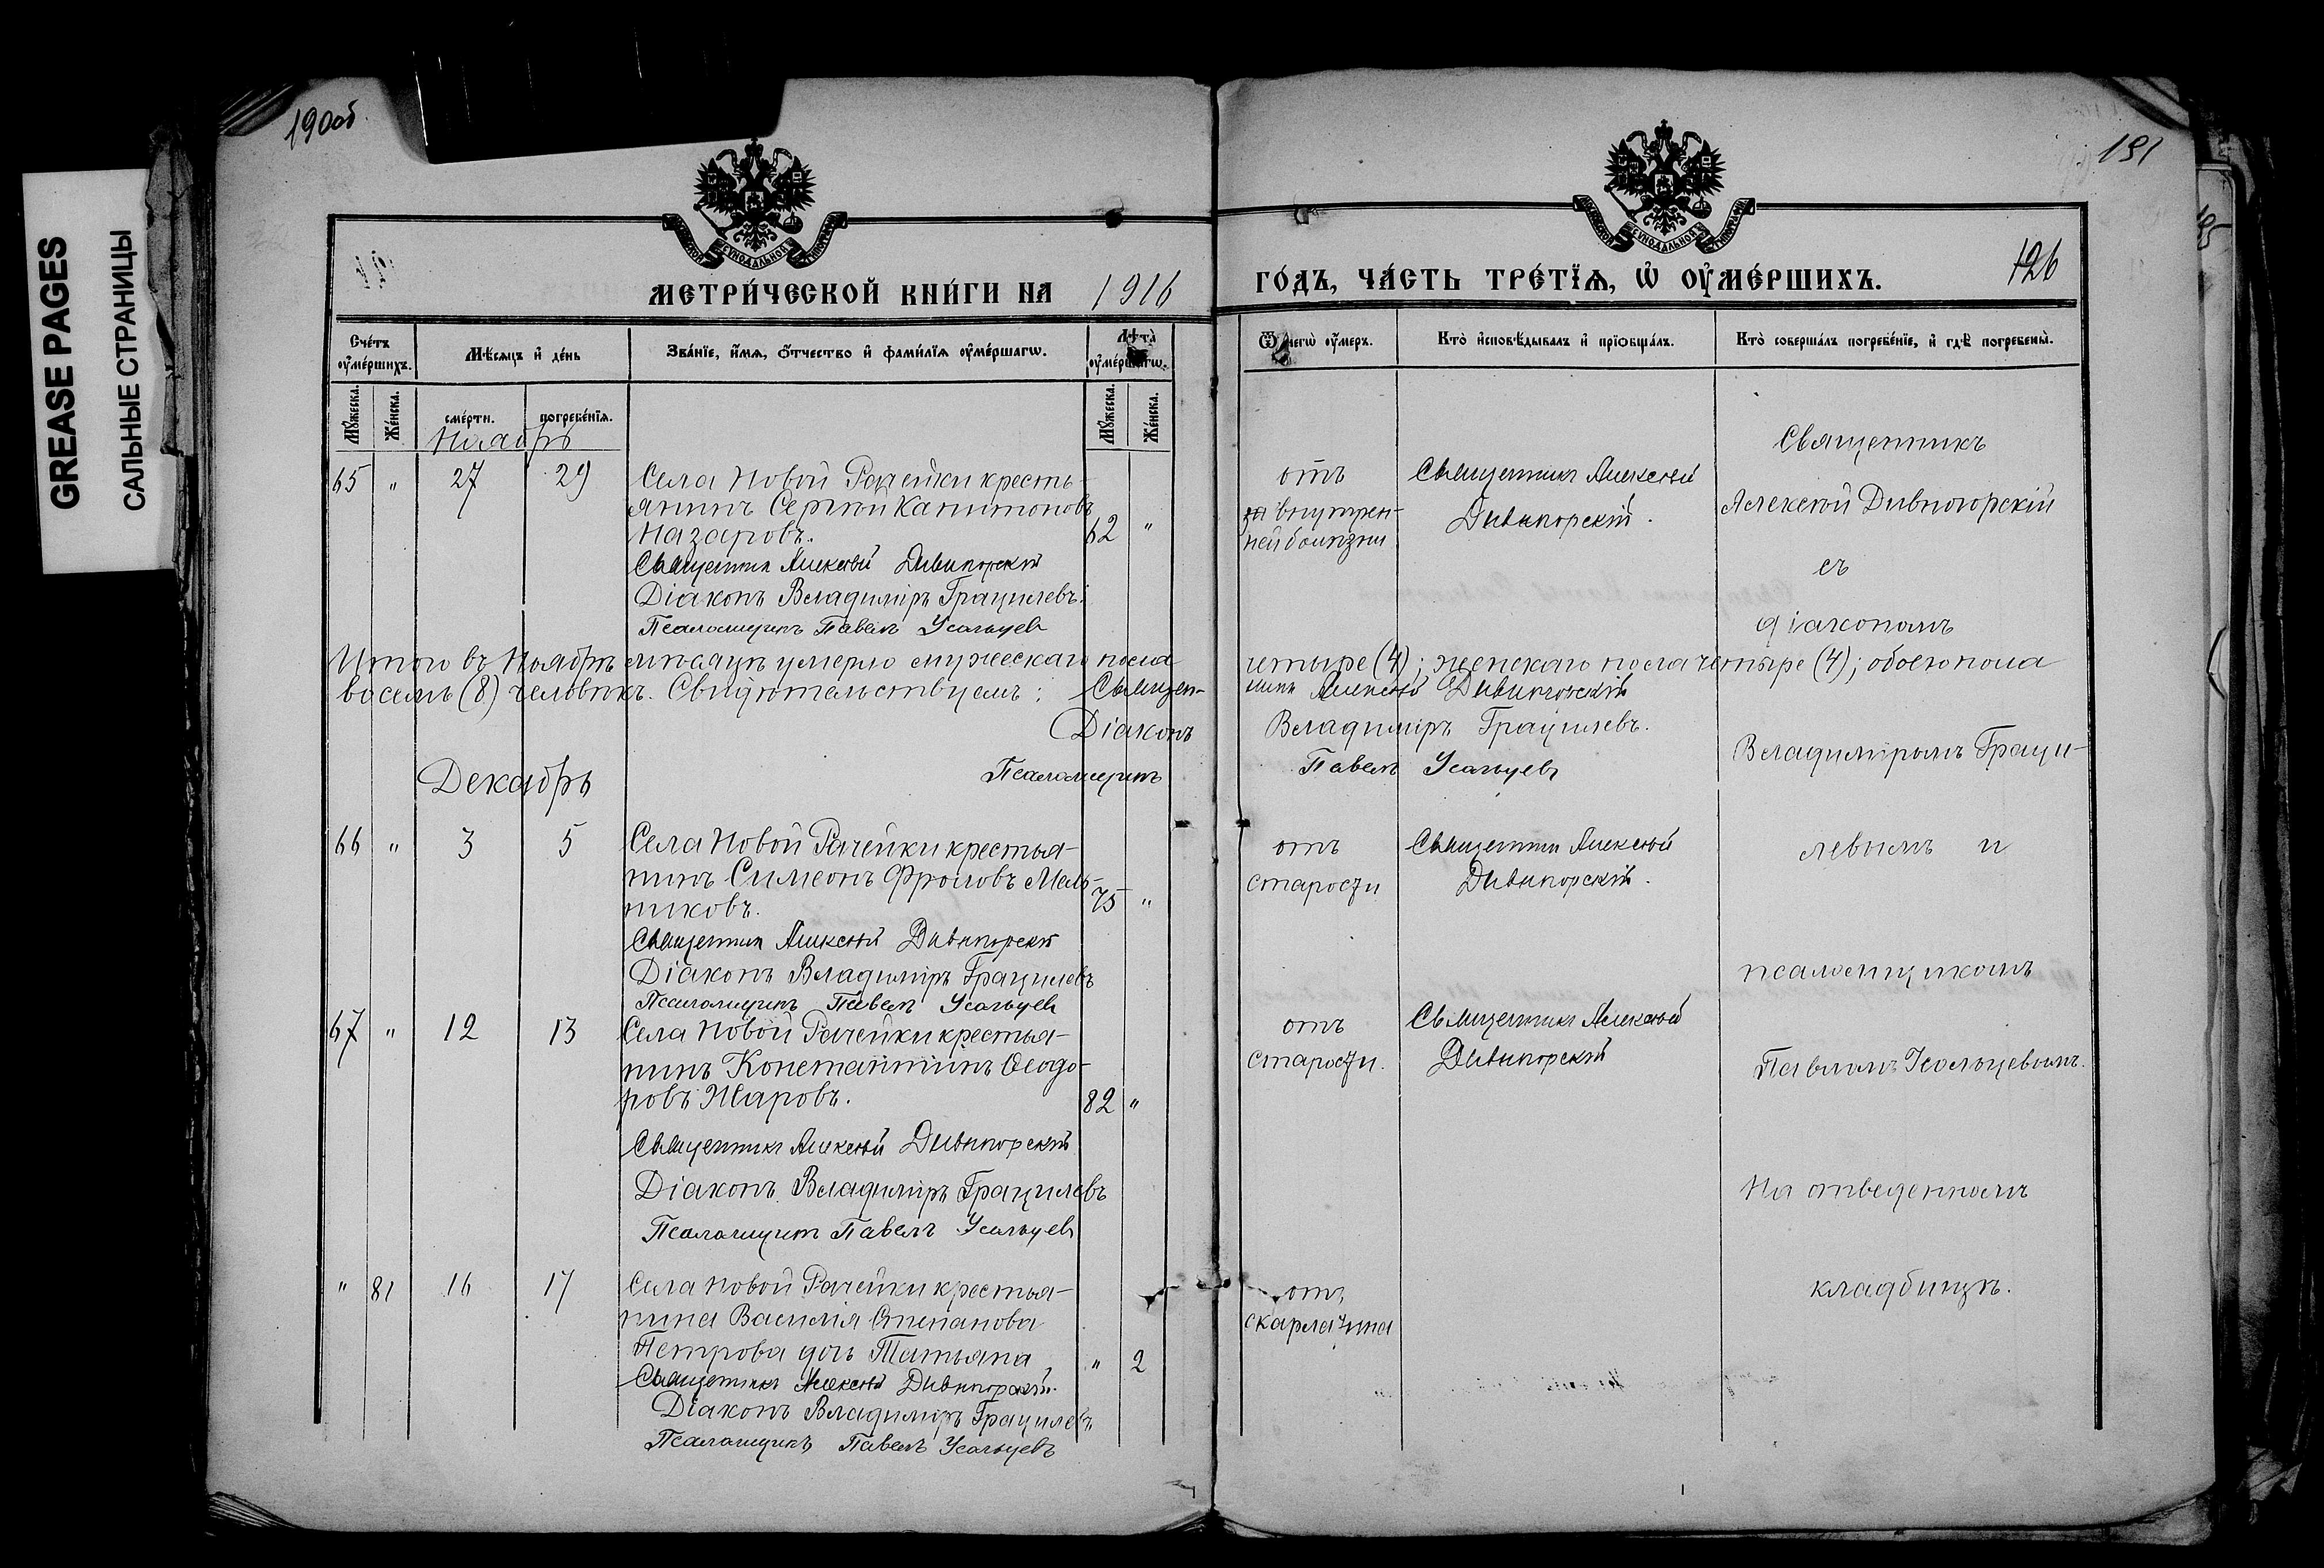 190об.
191
GREASE PAGES
САЛЬНЫЕ СТРАНИЦЫ
МЕТРИ́ЧЕСКОЙ КНИ́ГИ НА 1916
ГО́ДЪ, ЧА́СТЬ ТРЕ́ТЇѦ, Ѡ҆ ОУ҆МЕ́РШИХЪ.
126
Сче́тъ оу҆ме́ршихъ.
Мѣ́сяцъ и҆ де́нь
Зва́нїе, и҆́мѧ, ѻ҆́тчество и҆ фами́лїѧ оу҆ме́ршагѡ.
Лѣ̀та оу҆ме́ршагѡ.
Ѿ чегѡ̀ оу҆́меръ.
Кто̀ и҆сповѣ́дывалъ и҆ прїѡбща́лъ.
Кто̀ соверша́лъ погребе́нїе, и҆ гдѣ̀ погребены̀.
Мꙋ́жеска.
Же́нска.
сме́рти.
погребе́нїѧ.
Мꙋ́жеска.
Же́нска.
Ноябрь
65 " 27 29
Села Новой Рачейки кресть-
янинъ Сергѣй Капитоновъ
Назаровъ.
62 "
Священникъ Алексѣй Дивногорскій
Діаконъ Владиміръ Грацилевъ.
Псаломщикъ Павелъ Усольцевъ
отъ
внутрен-
ней болѣзни
Священникъ Алексѣй
Дивногорскій.
Священникъ
Алексѣй Дивногорскій
съ
діакономъ
Итого въ Ноябрѣ мѣсяцѣ умерло мужескаго пола четыре (4); женскаго пола четыре (4); обоего пола
восемь (8) человѣкъ. Свидѣтельствуемъ: Священ-никъ Алексѣй Дивногорскій
Діаконъ Владиміръ Грацилевъ.
Псаломщикъ Павелъ Усольцевъ
Владиміромъ Граци-
Декабрь
66 " 3 5
Села Новой Рачейки крестья-
нинъ Симеонъ Фроловъ Мель-
никовъ.
75 "
Священникъ Алексѣй Дивногорскій
Діаконъ Владиміръ Грацилевъ
Псаломщикъ Павелъ Усольцевъ
отъ
старости
Священникъ Алексѣй
Дивногорскій.
левымъ и
псаломщикомъ
67 " 12 13
Села Новой Рачейки крестья-
нинъ Константинъ Ѳеодо-
ровъ Жаровъ.
82 "
Священникъ Алексѣй Дивногорскій
Діаконъ Владиміръ Грацилевъ
Псаломщикъ Павелъ Усольцевъ
отъ
старости.
Священникъ Алексѣй
Дивногорскій
Павломъ Усольцевымъ.
На отведенномъ
" 81 16 17
Села Новой Рачейки крестья-
нина Василія Степанова
Петрова дочь Татьяна
" 2
Священникъ Алексѣй Дивногорскій.
Діаконъ Владиміръ Грацилевъ
Псаломщикъ Павелъ Усольцевъ
отъ
скарлатина
кладбищѣ.